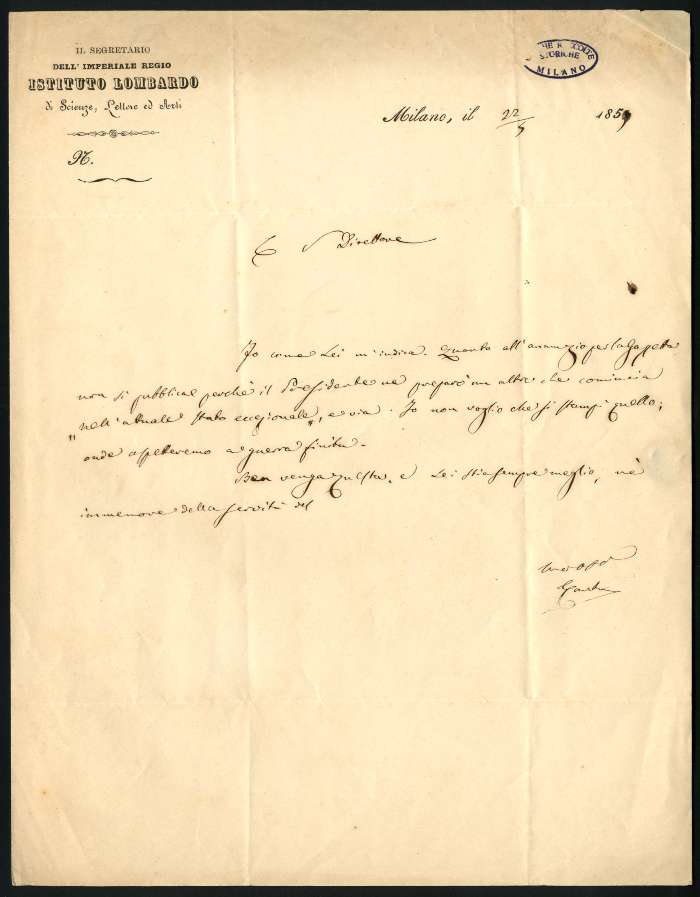 IL SEGRETARIO
DELL' IMPERIALE REGIO
ISTITUTO LOMBARDO
di Scienze, Lettere ed Arti
N.
CIVICHE RACCOLTE
STORICHE
MILANO
Milano, il 22/5 1859
Direttore
Fo come Lei m'indica. Quanto all'annunzio per la Gazzetta
non si pubblica perchè il Presidente ne preparò un altro che comincia
"nell'attuale stato eccezionale", e via. Io non voglio che si stampi quello;
onde aspetteremo a guerra finita.
Ben venga questa, e Lei stia sempre meglio, nè
immemore della servitù del